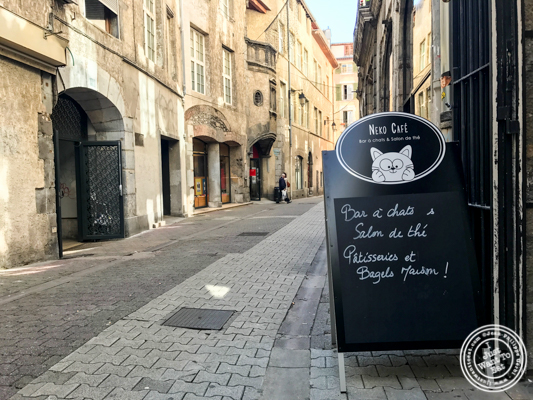 Neko Café
Bar à chats & Salon de thé
Bar à chats s
Salon de thé
Pâtisseries et
Bagels Maison !
JUST
WANT TO
EAT